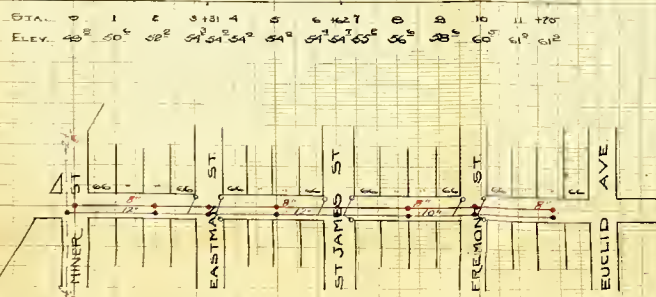 STA. 0 1 2 3 +31 4 5 6 +62 7 8 9 10 11 +75
ELEV. 49⁸ 50⁶ 52² 54³ 54² 54² 54² 54⁹ 54⁷ 55⁸ 56⁶ 58⁶ 60⁵ 61² 61²
66 - - 66 66 66 66 66 66 - - 66
8" 8" 8" 8"
12" 12" 10"
MINER ST
EASTMAN ST.
ST JAMES ST
FREMONT ST.
EUCLID AVE.